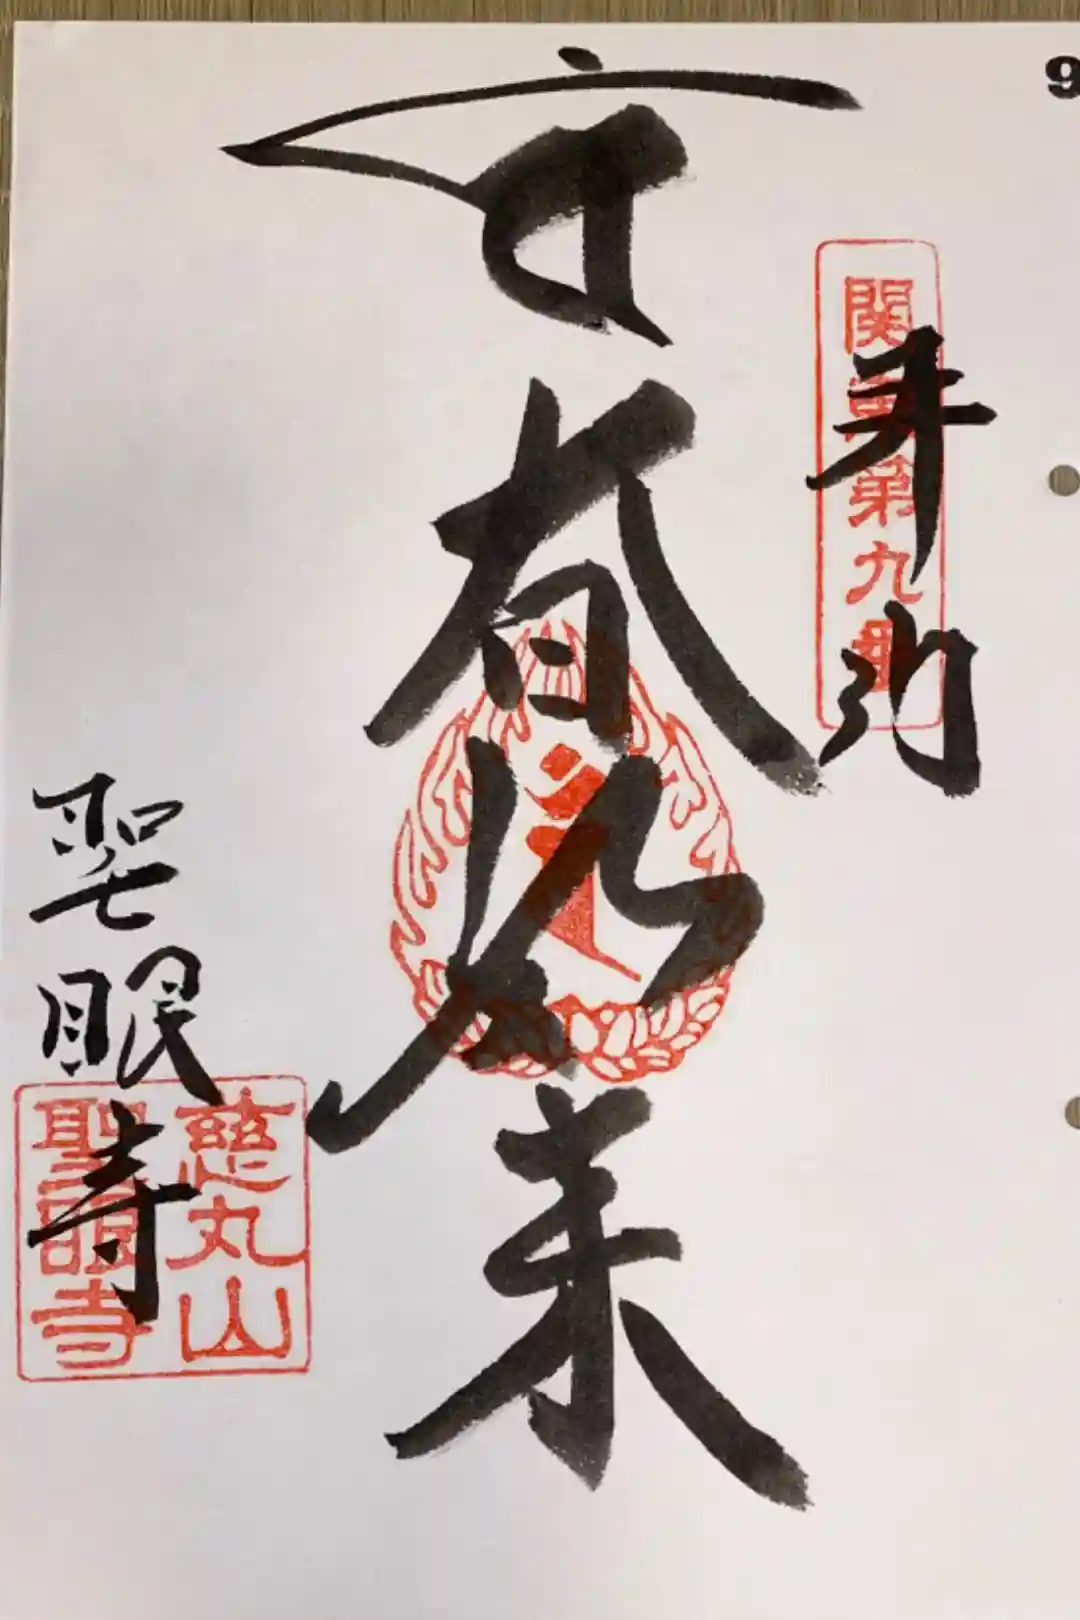 9
奉拝
第九番
如来
聖眼寺
慈丸山
聖眼寺